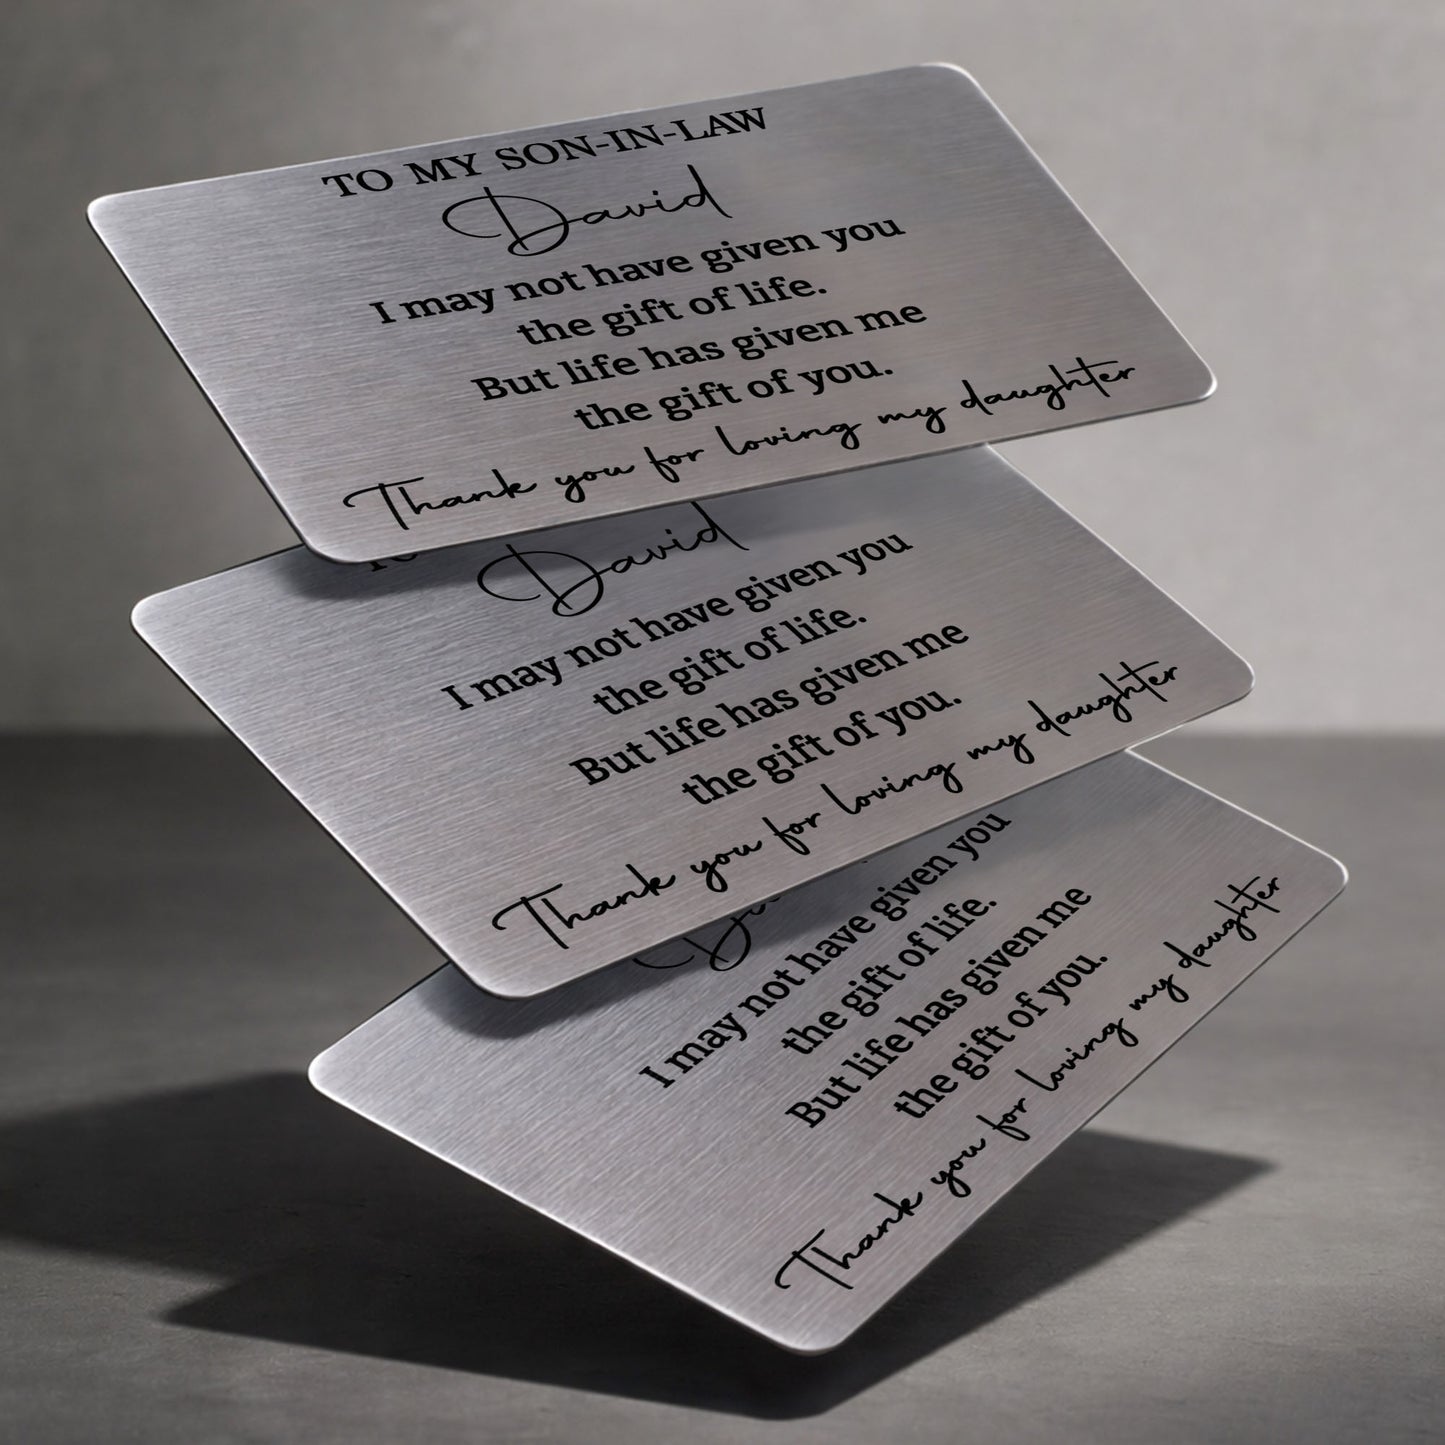 TO MY SON-IN-LAW
David
I may not have given you
the gift of life.
But life has given me
the gift of you.
Thank you for loving my daughter
David
I may not have given you
the gift of life.
But life has given me
the gift of you.
Thank you for loving my daughter
I may not have given you
the gift of life.
But life has given me
the gift of you.
Thank you for loving my daughter